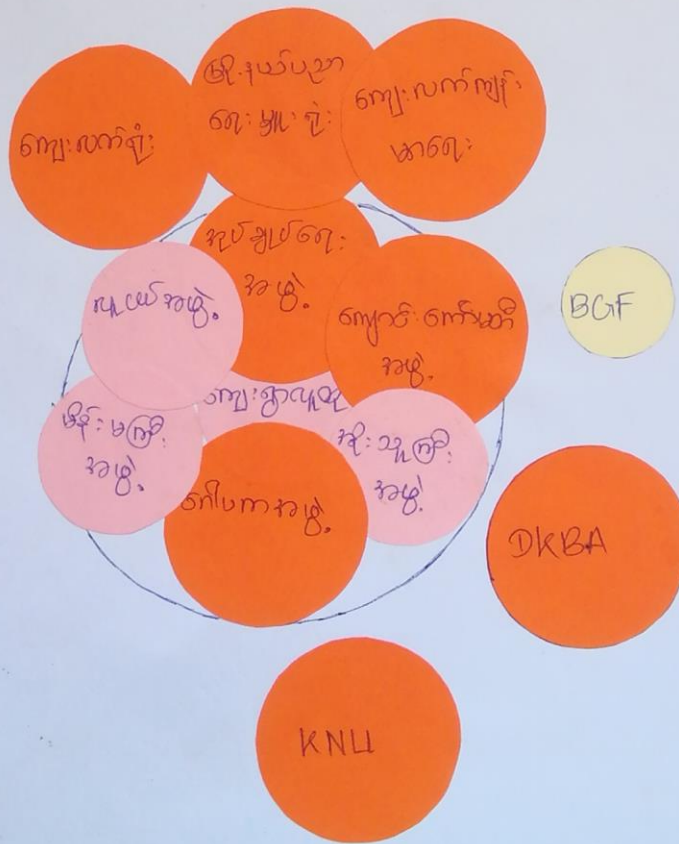 ကျေးလက်ရုံး
မြို့နယ်ပညာ
ရေးမှူးရုံး
ကျေးလက်ကျန်း
မာရေး
အုပ်ချုပ်ရေး
အဖွဲ့
လူငယ်အဖွဲ့
ကျောင်းကော်မတီ
အဖွဲ့
BGF
ကျေးရွာလူထု
မိန်းမကြီး
အဖွဲ့
အိုးသူကြီး
အဖွဲ့
ဂေါပကအဖွဲ့
DKBA
KNU